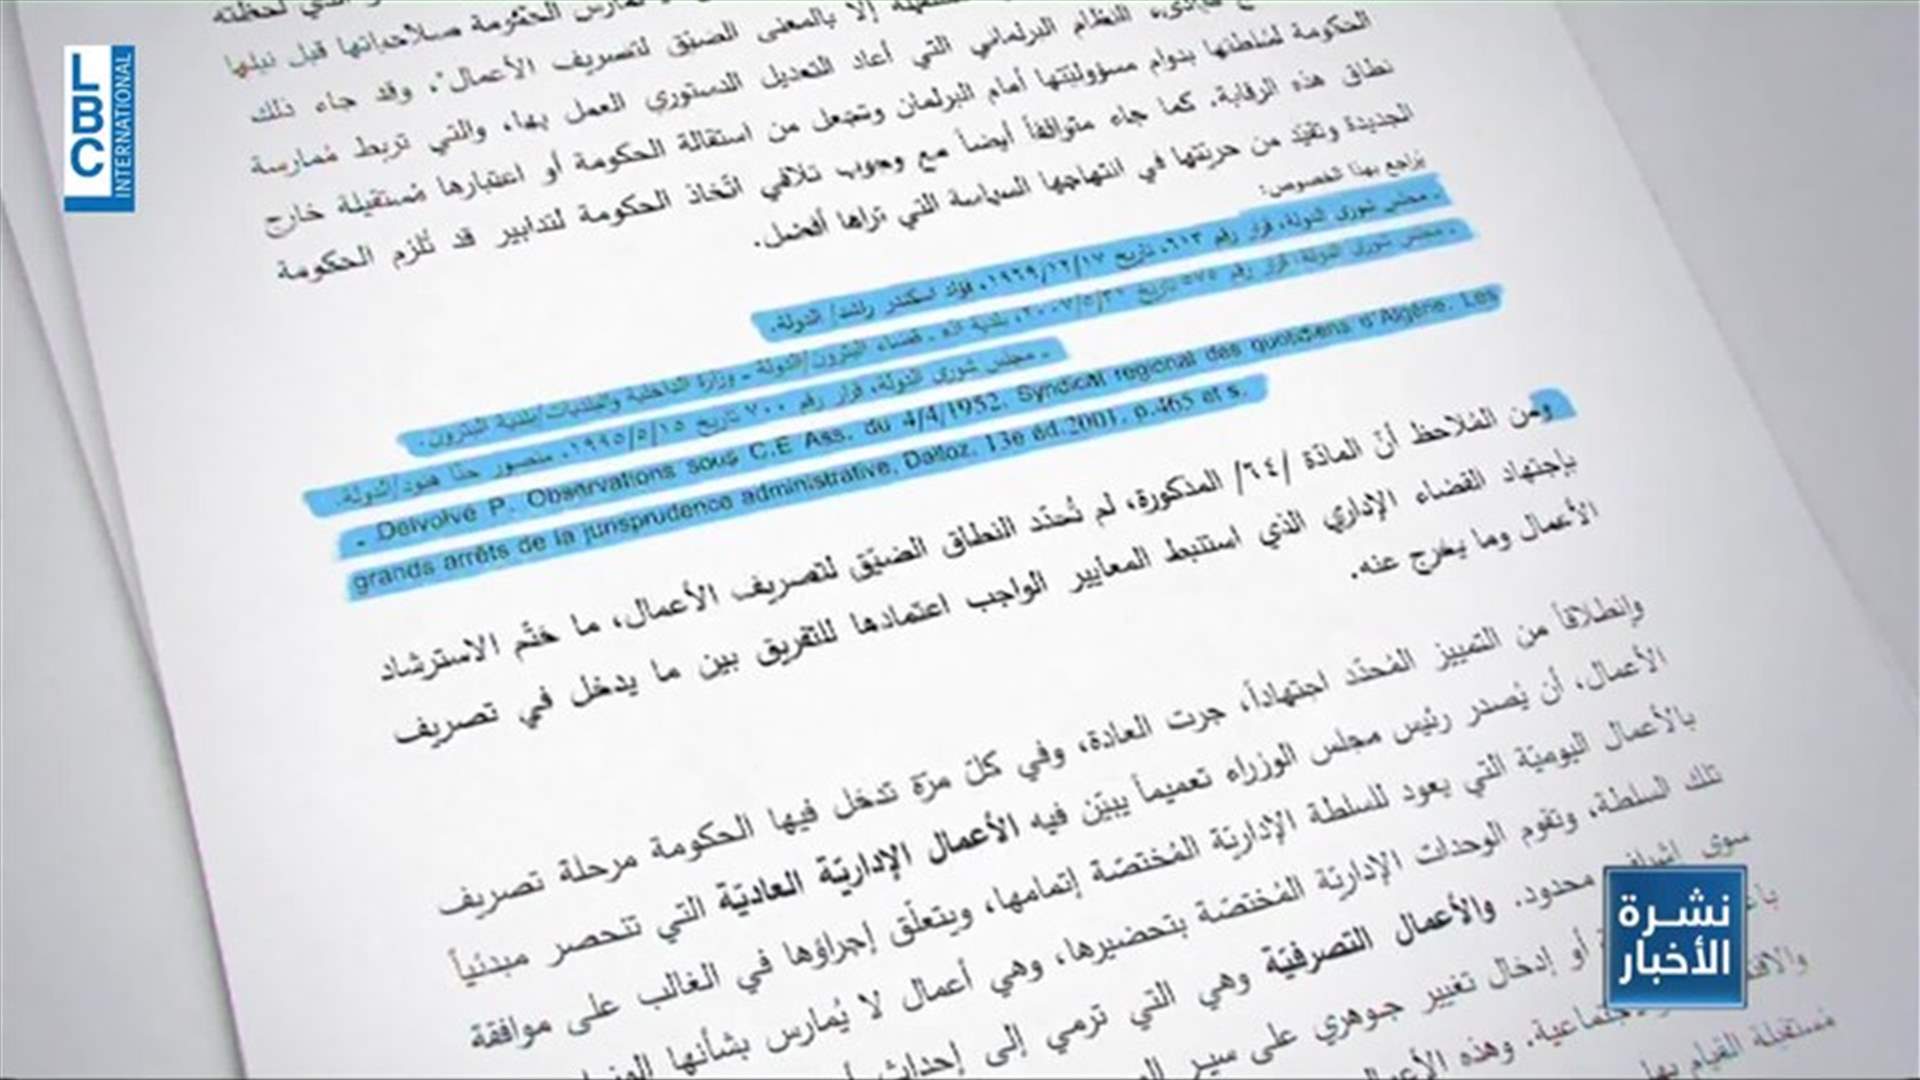 LBC
INTERNATIONAL
إلا بالمعنى الضيّق لتصريف الأعمال". وقد جاء ذلك
النظام البرلماني التي أعاد التعديل الدستوري العمل بها، والتي تربط مُمارسة
الحكومة لسُلطتها بدوام مسؤوليّتها أمام البرلمان وتجعل من استقالة الحكومة أو اعتبارها مُستقيلة خارج
نطاق هذه الرقابة. كما جاء متوافقاً أيضاً مع وجوب تلافي اتّخاذ الحكومة لتدابير قد تُلزم الحكومة
الجديدة وتقيّد من حريّتها في انتهاجها السياسة التي تراها أفضل.
يُراجع بهذا الخصوص:
- مجلس شورى الدولة، قرار رقم ٦١٣، تاريخ ١٩٦٩/١٢/١٧، فؤاد اسكندر راشد/ الدولة.
- مجلس شورى الدولة، قرار رقم ٥٧٥ تاريخ ، بلدية اده - قضاء البترون/الدولة - وزارة الداخلية والبلديات/بلدية البترون.
- مجلس شورى الدولة، قرار رقم ٧٠٠ تاريخ ١٩٩٥/٥/١٥، منصور حنّا هنود/الدولة.
- Delvolvé P. Observations sous C.E Ass. du 4/4/1952. Syndicat regional des quotidiens d'Algérie. Les
grands arrêts de la jurisprudence administrative. Dalloz. 13e éd.2001. p.465 et s.
ومن المُلاحظ أنّ المادّة /٦٤/ المذكورة، لم تُحدّد النطاق الضيّق لتصريف الأعمال، ما حتّم الاسترشاد
بإجتهاد القضاء الإداري الذي استنبط المعايير الواجب اعتمادها للتفريق بين ما يدخل في تصريف
الأعمال وما يخرج عنه.
وإنطلاقاً من التمييز المُحدّد اجتهاداً، جرت العادة، وفي كلّ مرّة تدخل فيها الحكومة مرحلة تصريف
الأعمال، أن يُصدر رئيس مجلس الوزراء تعميماً يبيّن فيه الأعمال الإداريّة العاديّة التي تنحصر مبدئياً
بالأعمال اليوميّة التي يعود للسلطة الإداريّة المُختصّة إتمامها، ويتعلّق إجراؤها في الغالب على موافقة
تلك السلطة، وتقوم الوحدات الإداريّة المُختصّة بتحضيرها، وهي أعمال لا يُمارس بشأنها
سوى إشراف محدود. والأعمال التصرفيّة وهي التي ترمي إلى إحداث
أو إدخال تغيير جوهري على سير
وهذه
مُستقيلة القيام بها
نشرة
الأخبار